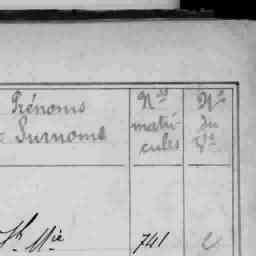 Prénoms
Surnoms
Nos
matri-
cules
No
du
Jh Mie 741